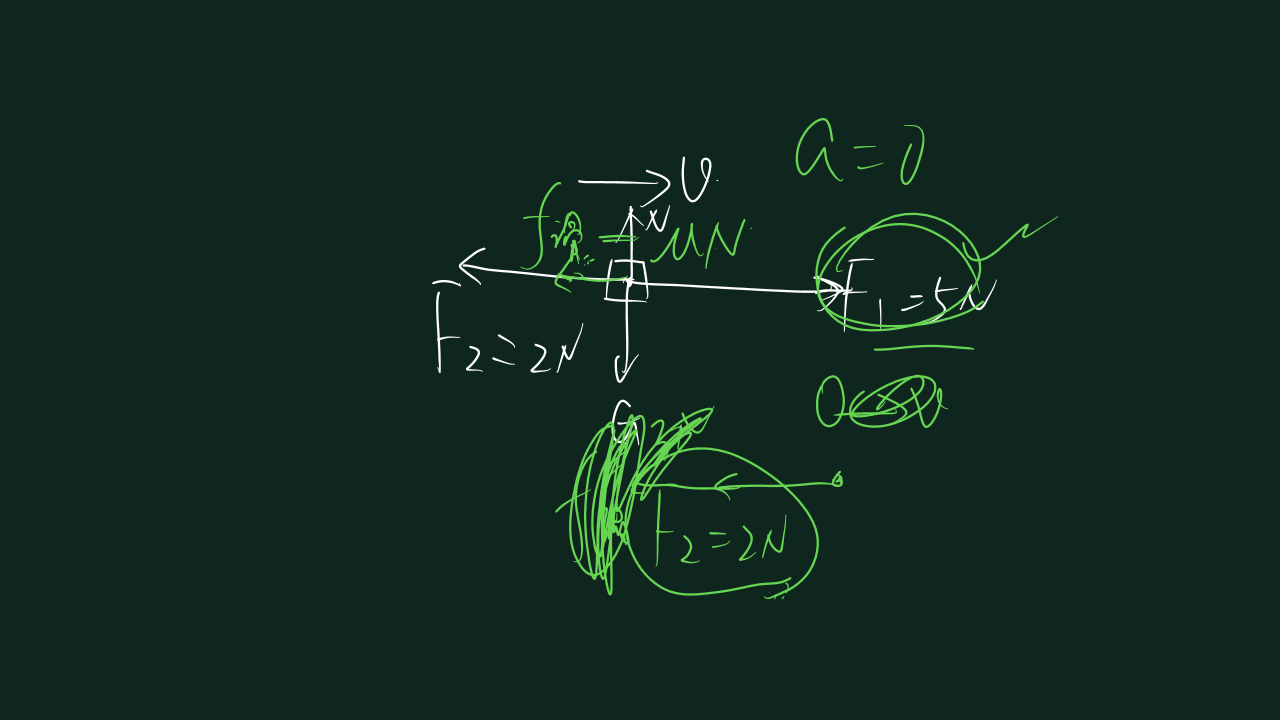 a = 0
v
N
f动 = μN
F1 = 5N
F2 = 2N
G
F2 = 2N